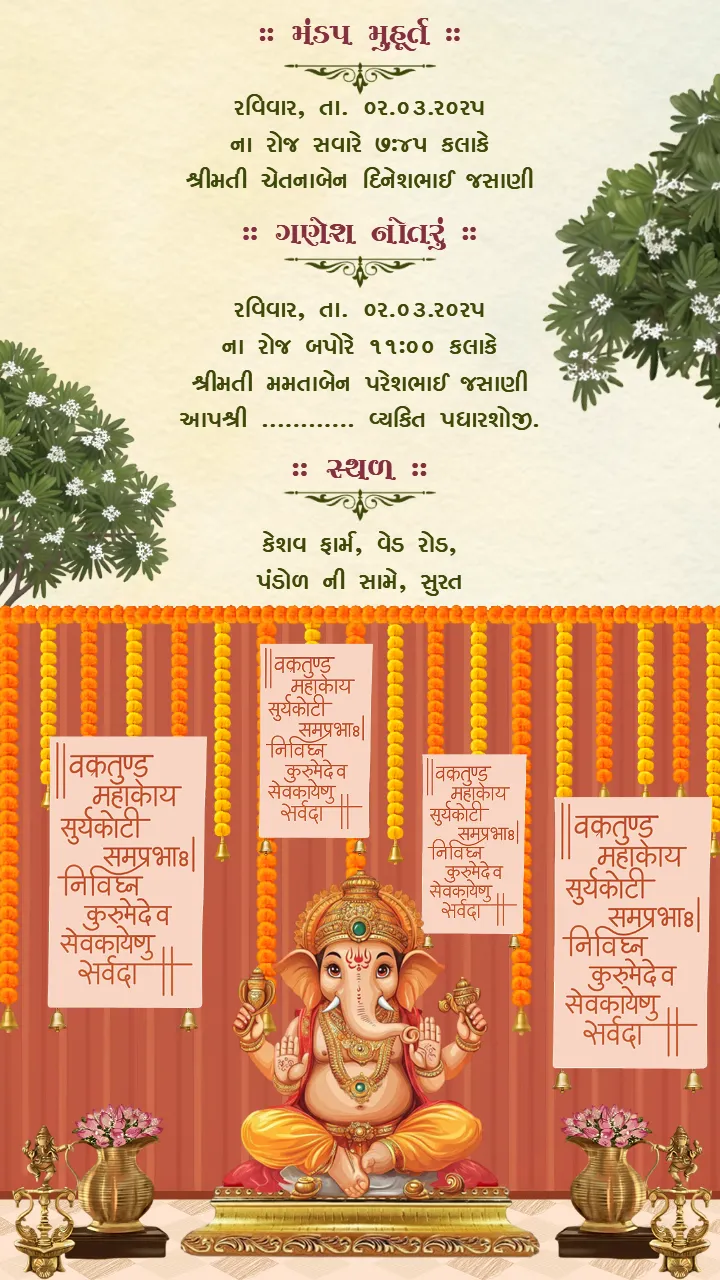 :: મંડપ મુહૂર્ત ::
રવિવાર, તા. ૦૨.૦૩.૨૦૨૫
ના રોજ સવારે ૭:૪૫ કલાકે
શ્રીમતી ચેતનાબેન દિનેશભાઈ જસાણી
:: ગણેશ નોતરું ::
રવિવાર, તા. ૦૨.૦૩.૨૦૨૫
ના રોજ બપોરે ૧૧:૦૦ કલાકે
શ્રીમતી મમતાબેન પરેશભાઈ જસાણી
આપશ્રી ............ વ્યકિત પધારશોજી.
:: સ્થળ ::
કેશવ ફાર્મ, વેડ રોડ,
પંડોળ ની સામે, સુરત
॥वक्रतुण्ड
महाकाय
सुर्यकोटी
समप्रभाः।
निविघ्न
कुरुमेदेव
सेवकायेणु
सर्वदा ॥
॥वक्रतुण्ड
महाकाय
सुर्यकोटी
समप्रभाः।
निविघ्न
कुरुमेदेव
सेवकायेणु
सर्वदा ॥
॥वक्रतुण्ड
महाकाय
सुर्यकोटी
समप्रभाः।
निविघ्न
कुरुमेदेव
सेवकायेणु
सर्वदा ॥
॥वक्रतुण्ड
महाकाय
सुर्यकोटी
समप्रभाः।
निविघ्न
कुरुमेदेव
सेवकायेणु
सर्वदा ॥